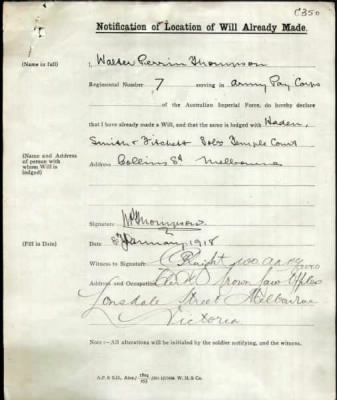 C350
Notification of Location of Will Already Made.
(Name in full)
I, Walter Perrin Thompson
Regimental Number 7 serving in Army Pay Corps
of the Australian Imperial Force, do hereby declare
that I have already made a Will, and that the same is lodged with Haden,
Smith & Fitchett Solrs Temple Court
(Name and Address of person with whom Will is lodged)
Address Collins St Melbourne
Signature WPThompson
(Fill in Date)
Date 8th January, 1918
Witness to Signature
Address and Occupation Clerk Crown Law Offices
Lonsdale Street Melbourne
Victoria
Note:—All alterations will be initialed by the soldier notifying, and the witness.